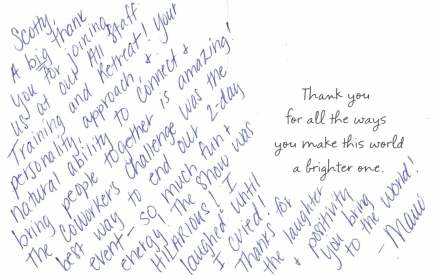 Scotty,
A big thank
you for joining
us at our All Staff
Training and Retreat! Your
personality, approach, &
natural ability to connect &
bring people together is amazing!
The CoWorkers Challenge was the
best way to end our 2-day
event - so much fun &
energy! The show was
HILARIOUS! I
laughed until
I cried!
Thanks for
the laughter
& positivity
you bring
to the world!
Thank you
for all the ways
you make this world
a brighter one.